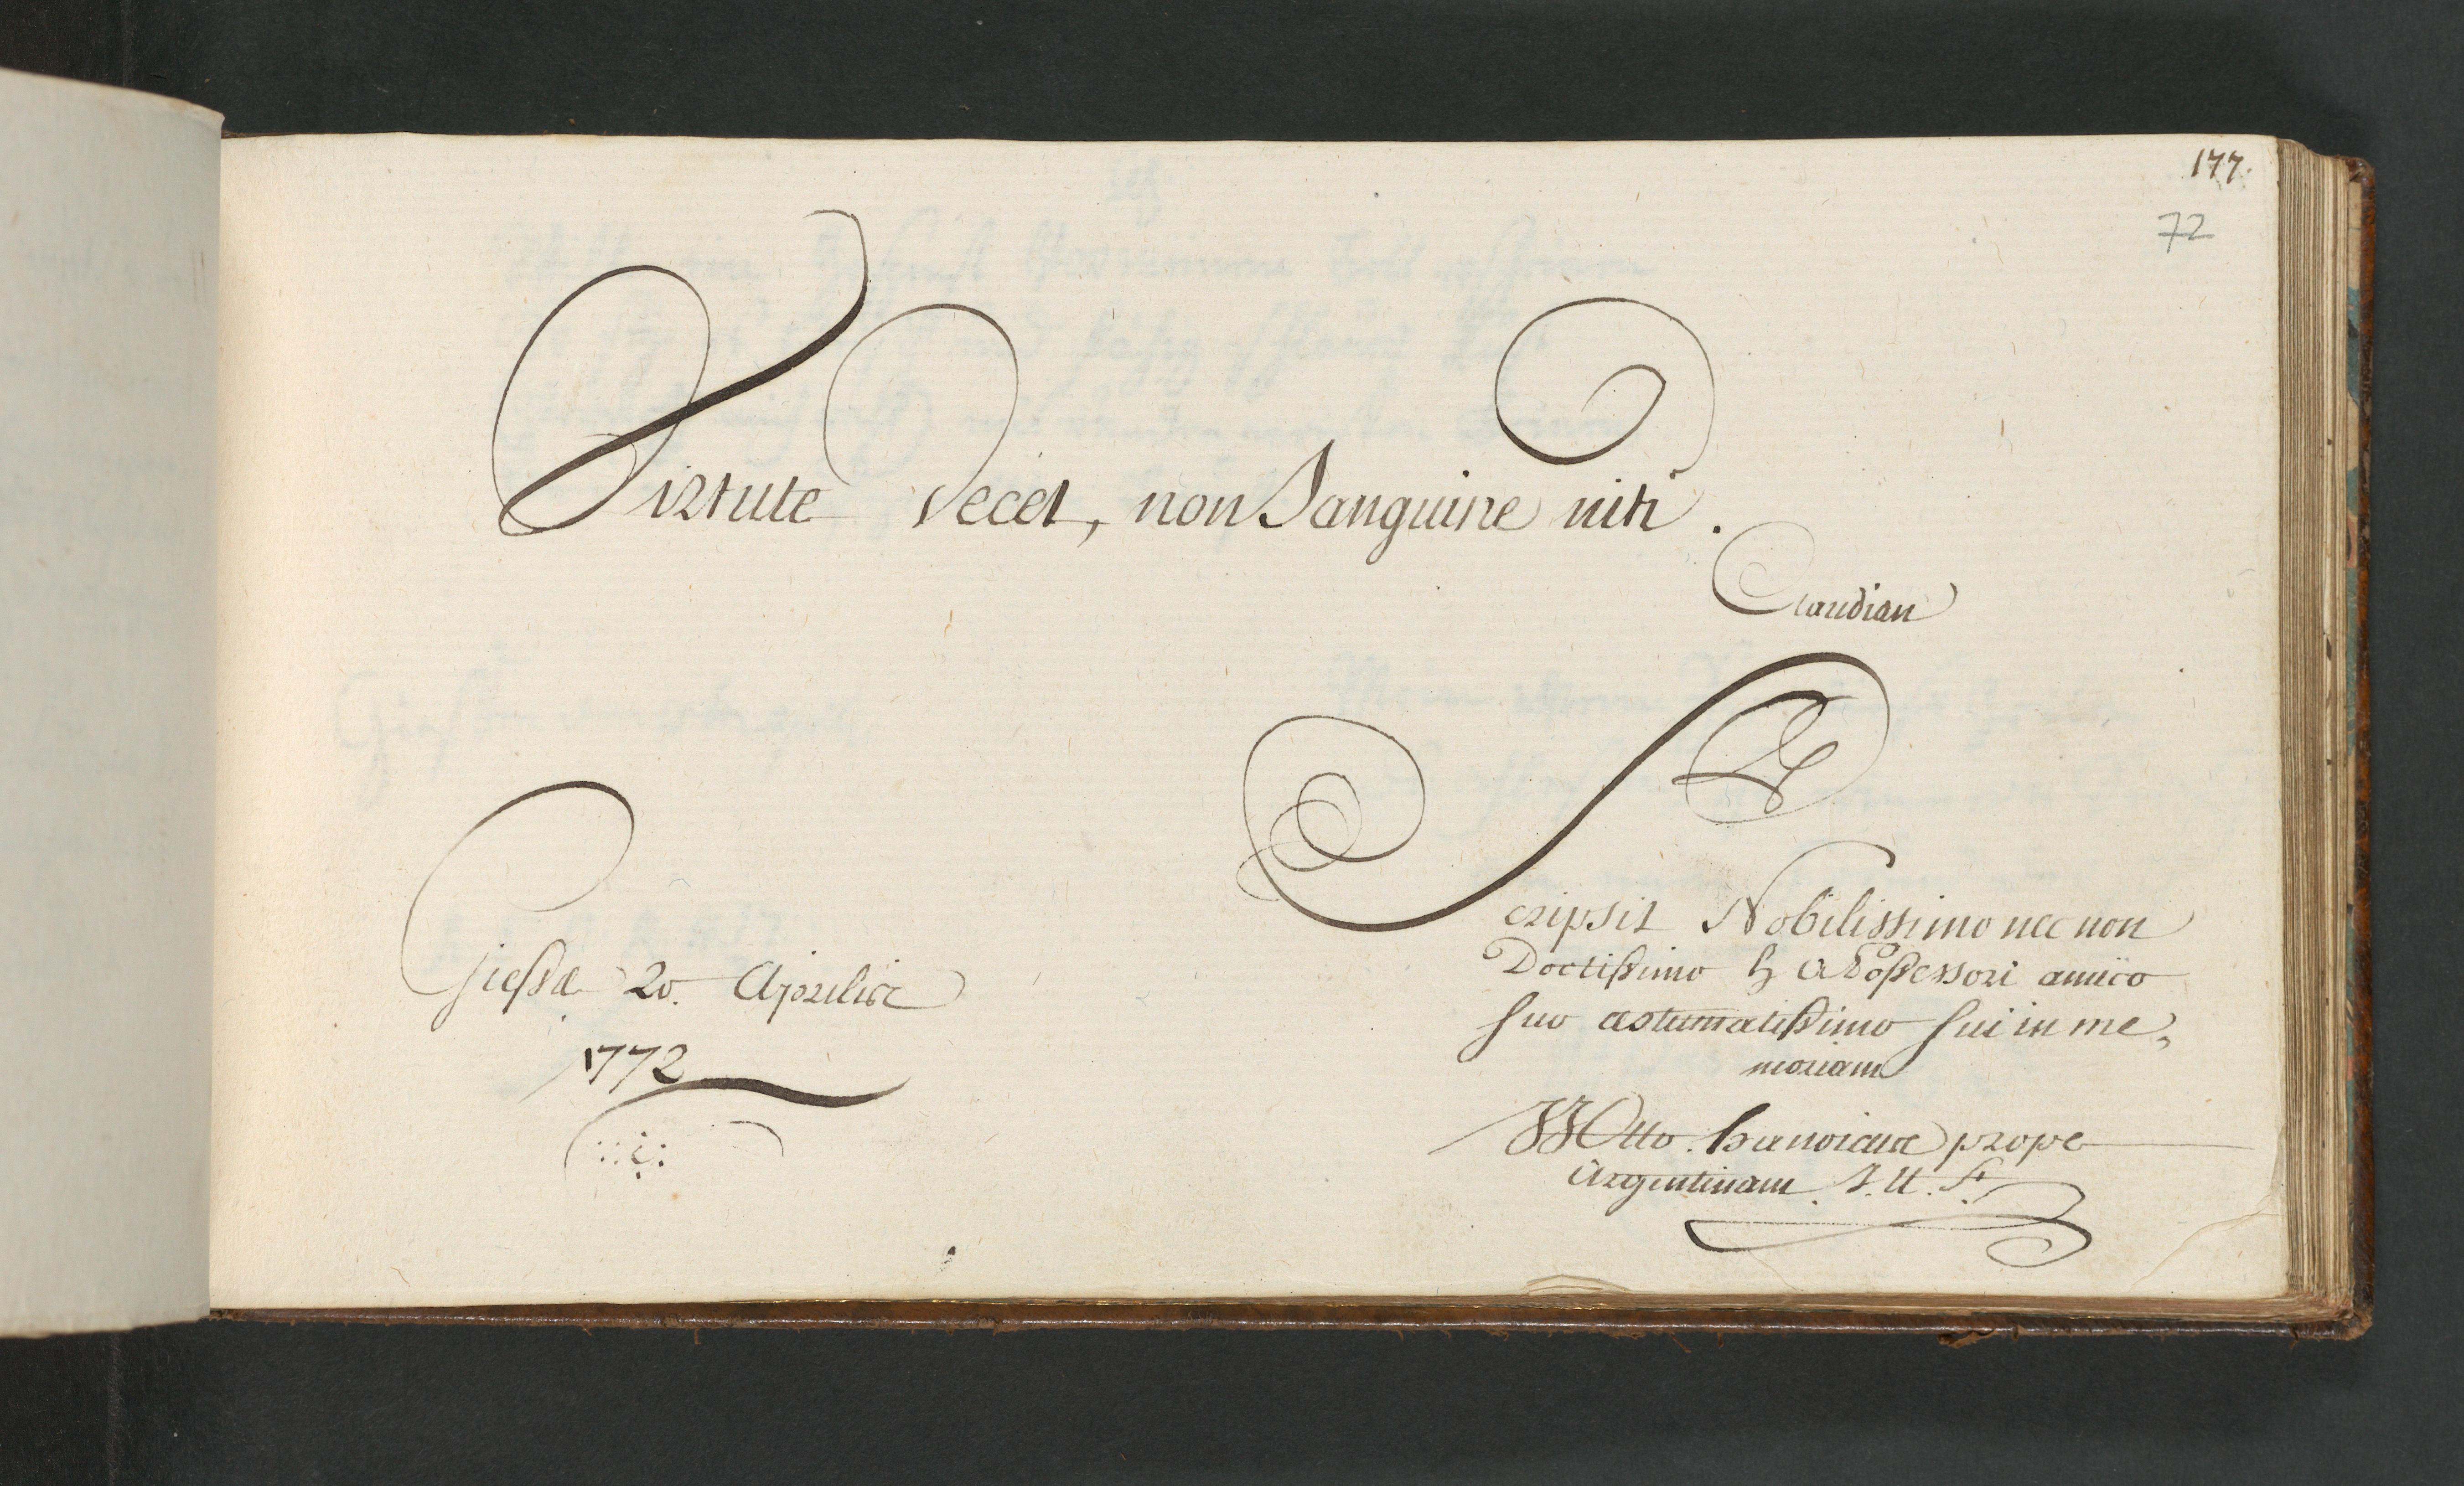 177.
72
Virtute decet, non Sanguine niti.
Claudian
Giessæ 20. Aprilis
1772
Scripsit Nobilissimo nec non
Doctissimo h. a. Possessori amico
suo æstumatissimo sui in me,
moriam
Otto. Hanoicus prope
Argentinam.